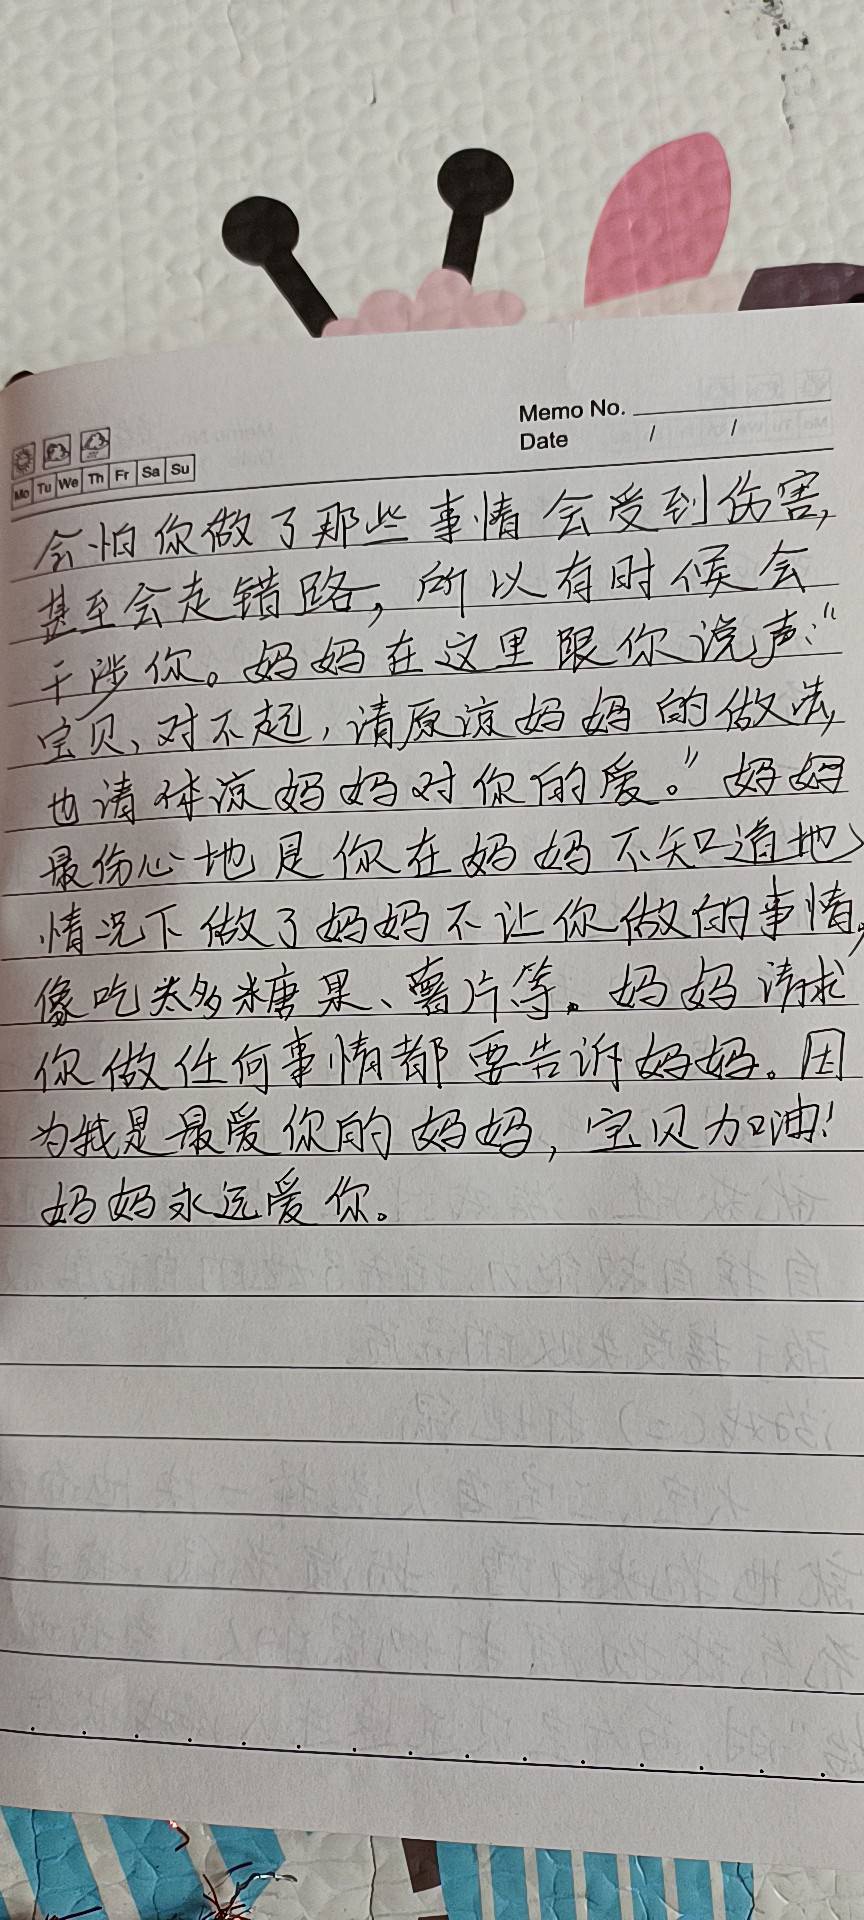 Memo No.
Date / /
Mo Tu We Th Fr Sa Su
会怕你做了那些事情会受到伤害,
甚至会走错路,所以有时候会
干涉你。妈妈在这里跟你说声:“
宝贝、对不起,请原谅妈妈的做法,
也请体谅妈妈对你的爱。”妈妈
最伤心地是你在妈妈不知道地
情况下做了妈妈不让你做的事情,
像吃太多糖果、薯片等。妈妈请求
你做任何事情都要告诉妈妈。因
为我是最爱你的妈妈,宝贝加油!
妈妈永远爱你。